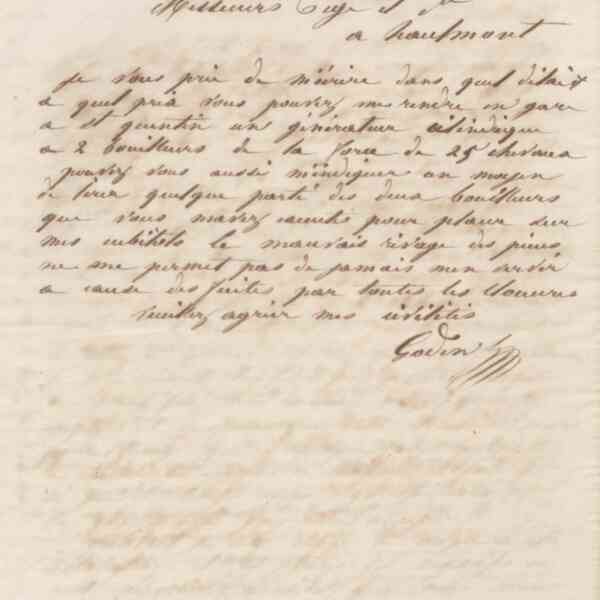 Messieurs
a haulmont
je vous prie de m'écrire dans quel délai et
a quel prix vous pouvez me rendre en gare
a st quentin un générateur cilindrique
a 2 bouilleurs de la force de 25 chevaux
pouvez vous aussi m'indiquer un moyen
de tirer quelque parti des deux bouilleurs
que vous mavez pour placer sur
mes le mauvais rivage des
ne me permet pas de jamais men servir
a cause des fuites par toutes les clouures
veuillez agréer mes civilités
Godin